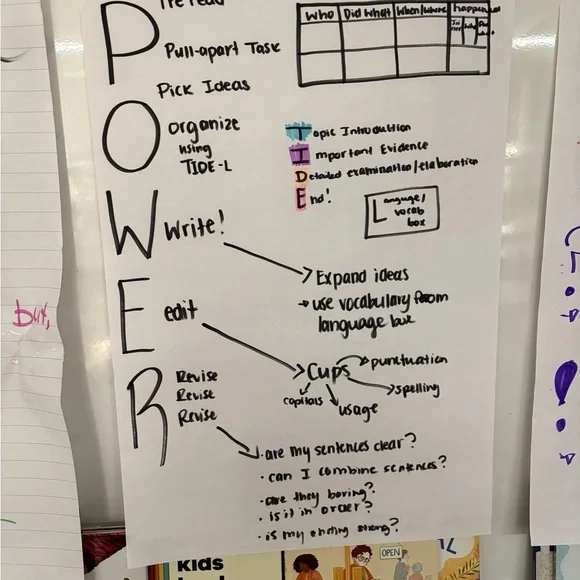 P
Pull-apart Task
Pick Ideas
Who Did What When/where
O
Organize
using
TIDE-L
Topic Introduction
Important Evidence
Detailed examination/elaboration
End!
Language/
vocab
box
W
Write!
Expand ideas
use vocabulary from
language box
E
edit
Cups
punctuation
spelling
capitals
usage
R
Revise
Revise
Revise
• are my sentences clear?
• can I combine sentences?
• are they boring?
• is it in order?
• is my ending strong?
but,
Kids
OPEN